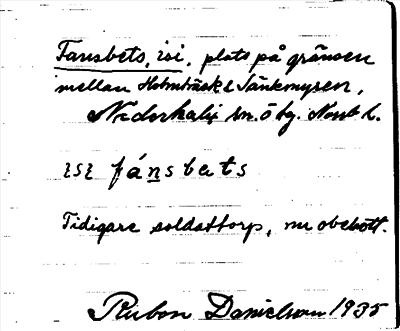 Fansbets, isi, plats på gränsen
mellan Holmträsk & Sänkmyren,
Nederkalix sn. ö bg. Norrb l.
isi fánsbets
Tidigare soldattorp, nu obebott.
Rubon Danielson 1935